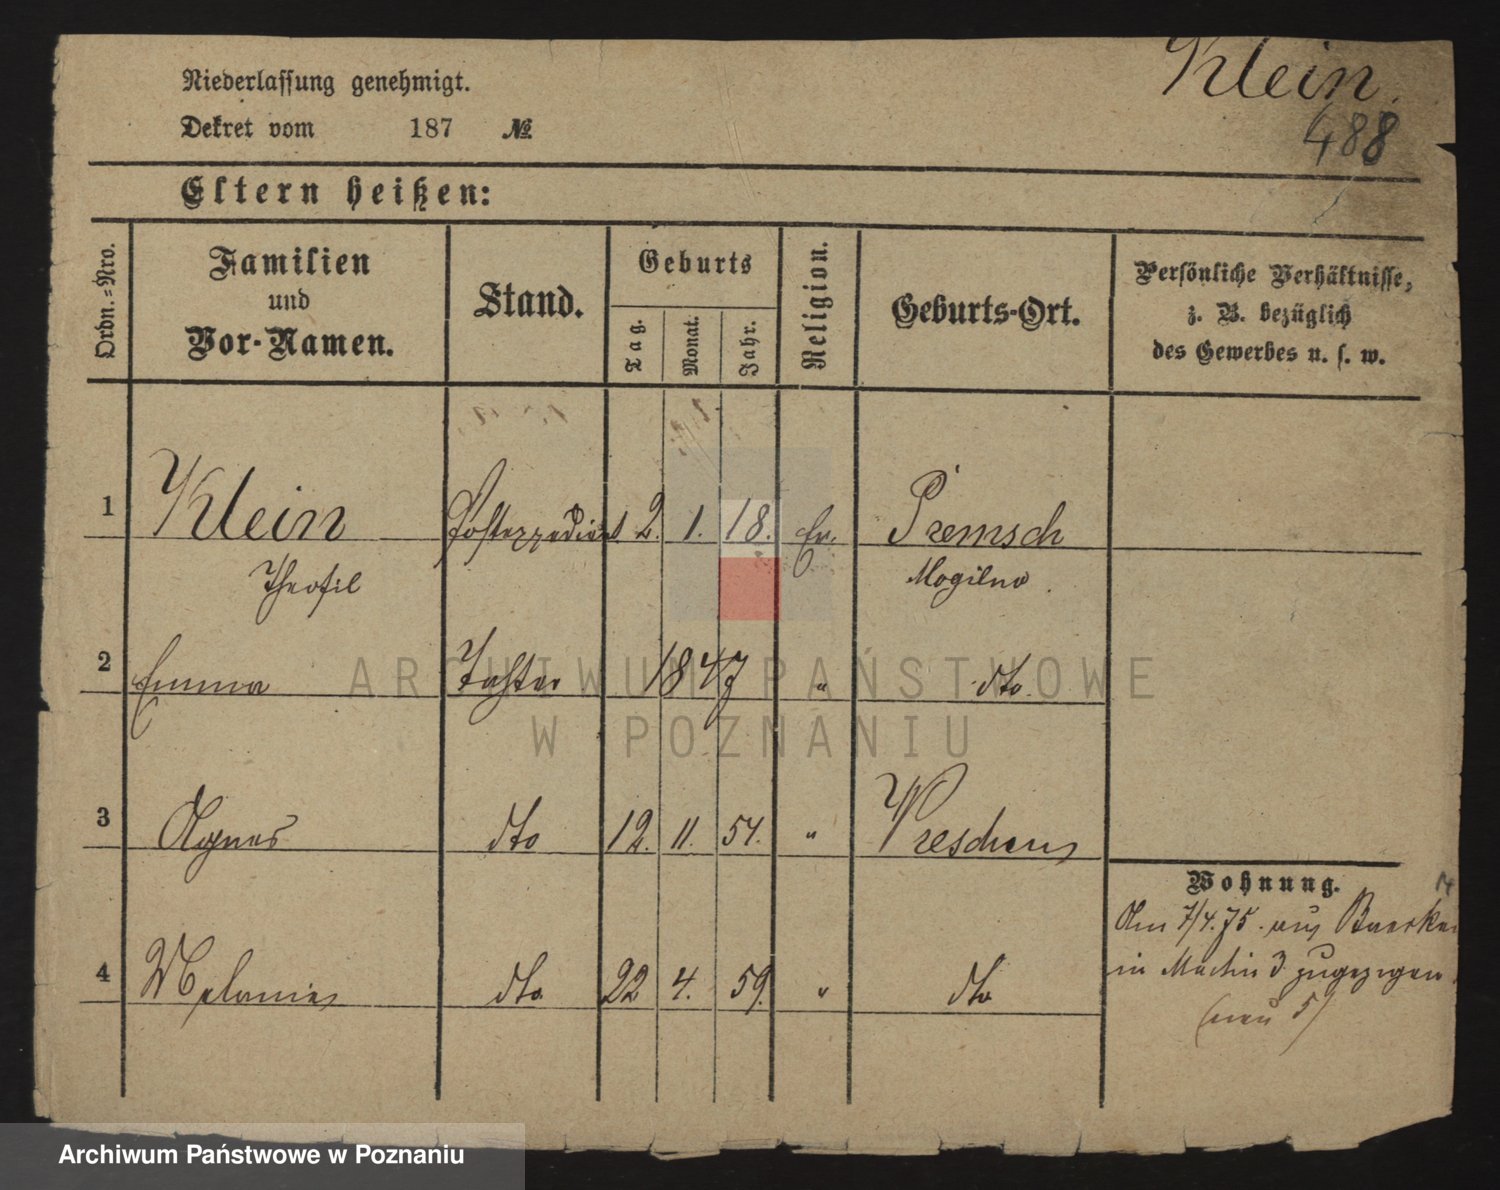 Klein
488
Niederlassung genehmigt.
Dekret vom 187 №
Eltern heißen:
Ordn.=Nro.
Familien und Vor-Namen.
Stand.
Geburts
Tag. Monat. Jahr.
Religion.
Geburts-Ort.
Persönliche Verhältnisse,
z. B. bezüglich
des Gewerbes u. s. w.
1 Klein Postexpedient 2. 1. 18. Ev. Premsch
Theofil Mogilno
2 Emma Tochter 1847 " dto
3 Agnes dto 12. 11. 54. " Wreschen
4 Melanie dto 22 4. 59. " dto
Wohnung.
Am 7/4.75. aus
in Martin 3 zugezogen
(neu 5)
ARCHIWUM PAŃSTWOWE
W POZNANIU
Archiwum Państwowe w Poznaniu